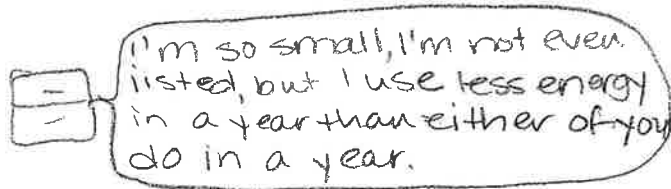 I'm so small, I'm not even
listed, but I use less energy
in a year than either of you
do in a year.